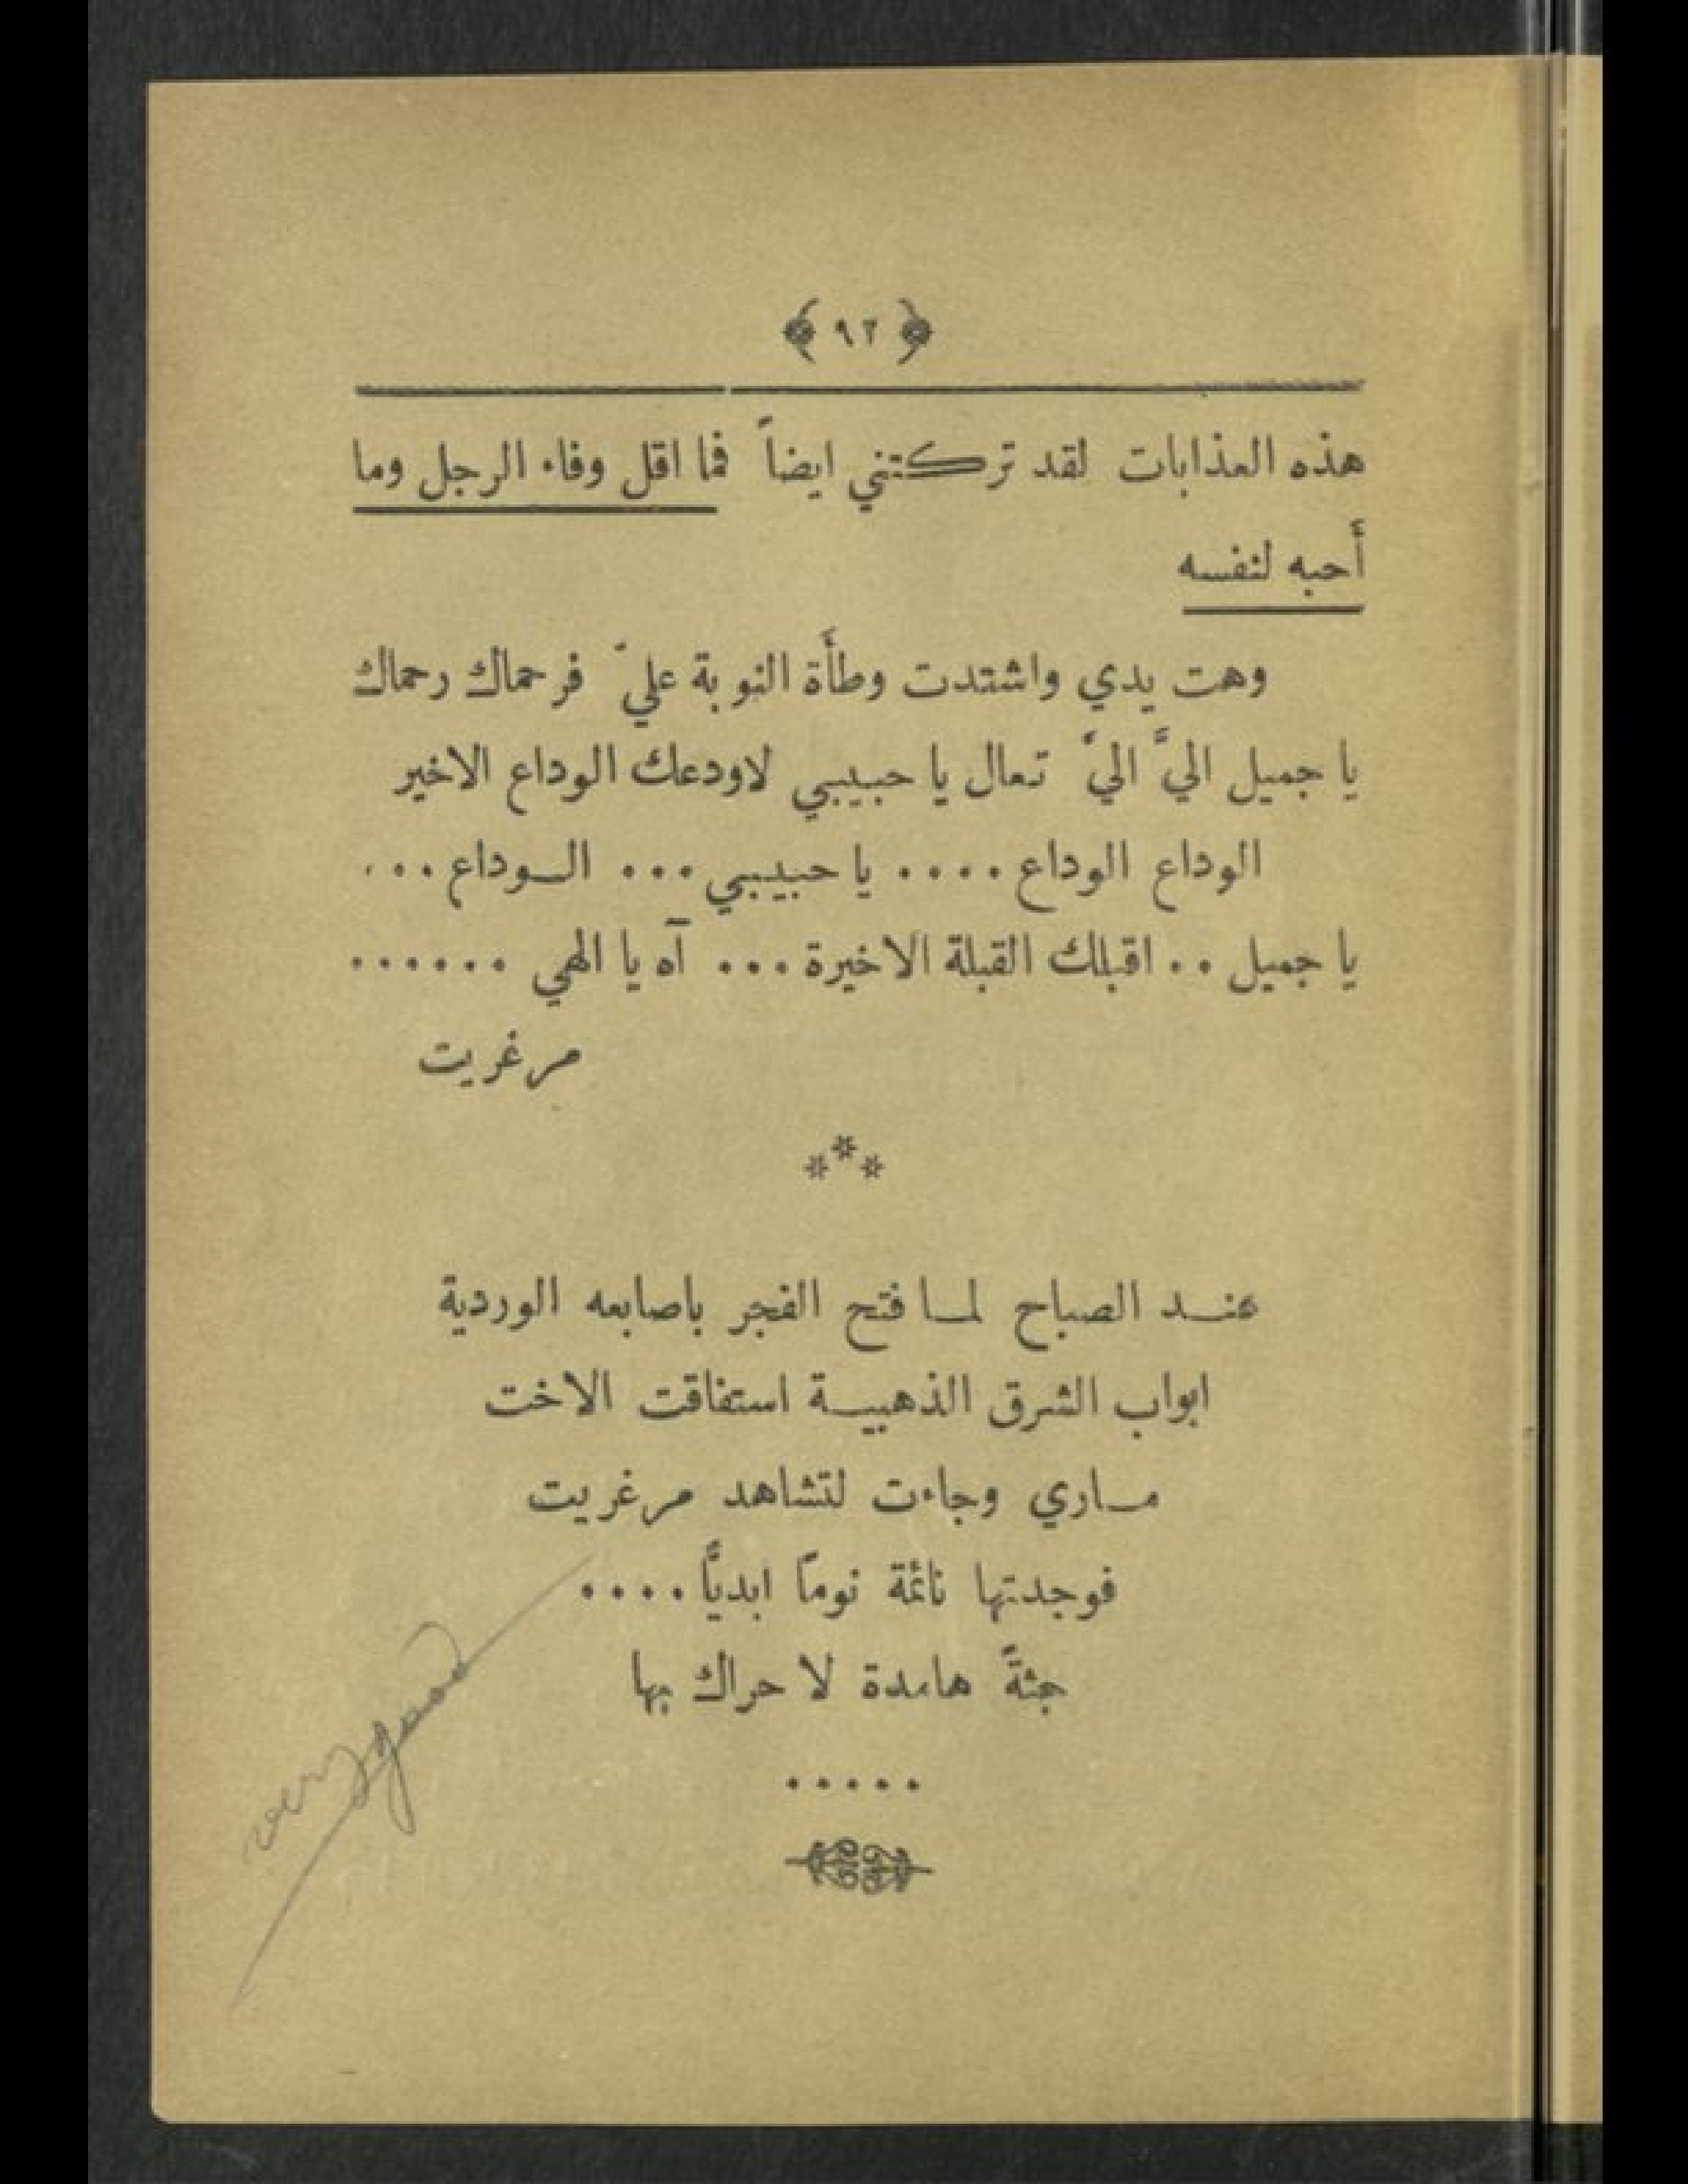 ﴿ ٩٢ ﴾
هذه العذابات لقد تركتني ايضاً فما اقل وفاء الرجل وما
أحبه لنفسه
وهت يدي واشتدت وطأة النوبة عليّ فرحماك رحماك
يا جميل اليَّ اليَّ تعال يا حبيبي لاودعك الوداع الاخير
الوداع الوداع .... يا حبيبي ... الـوداع ...
يا جميل .. اقبلك القبلة الاخيرة ... آه يا الهي ......
مرغريت
***
عنـد الصباح لمـا فتح الفجر باصابعه الوردية
ابواب الشرق الذهبيـة استفاقت الاخت
مـاري وجاءت لتشاهد مرغريت
فوجدتها نائمة نوماً ابديًّا ....
جثةً هامدة لا حراك بها
.....
very good